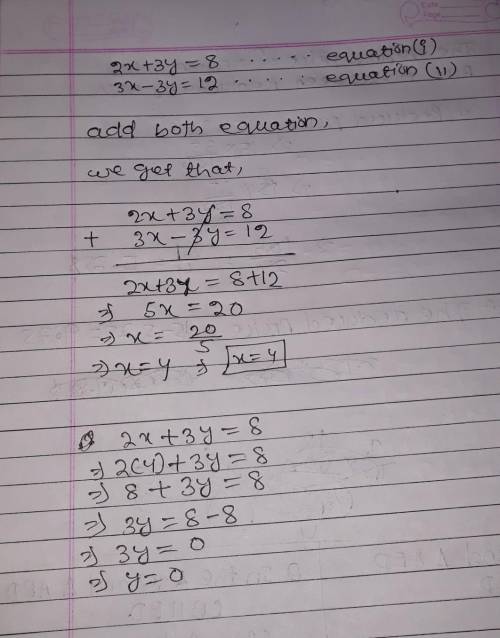 Date
Page
2x+3y = 8 ..... equation(i)
3x-3y=12 ..... equation (ii)
add both equation,
we get that,
2x+3y=8
+ 3x-3y=12
2x+3x = 8+12
⇒ 5x = 20
⇒ x = 20/5
⇒ x=4 ⇒ x=4
2x+3y=8
⇒ 2(4)+3y=8
⇒ 8+3y=8
⇒ 3y=8-8
⇒ 3y=0
⇒ y=0